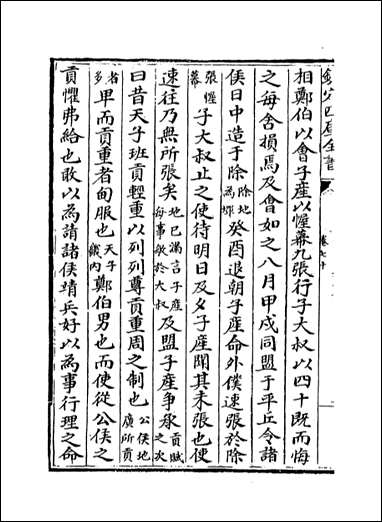 欽定四庫全書
卷七十
相鄭伯以會子産以幄幕九張行子大叔以四十既而悔
之每舍損焉及會如之八月甲戌同盟于平丘令諸
侯日中造于除除地為壇癸酉退朝子産命外僕速張於除
張幄幕子大叔止之使待明日及夕子産聞其未張也使
速往乃無所張矣地已滿言子産每事敏於大叔及盟子産爭承貢賦之次
曰昔天子班貢輕重以列列尊貢重周之制也公侯地廣所貢
者多卑而貢重者甸服也天子畿内鄭伯男也而使從公侯之
貢懼弗給也敢以為請諸侯靖兵好以為事行理之命